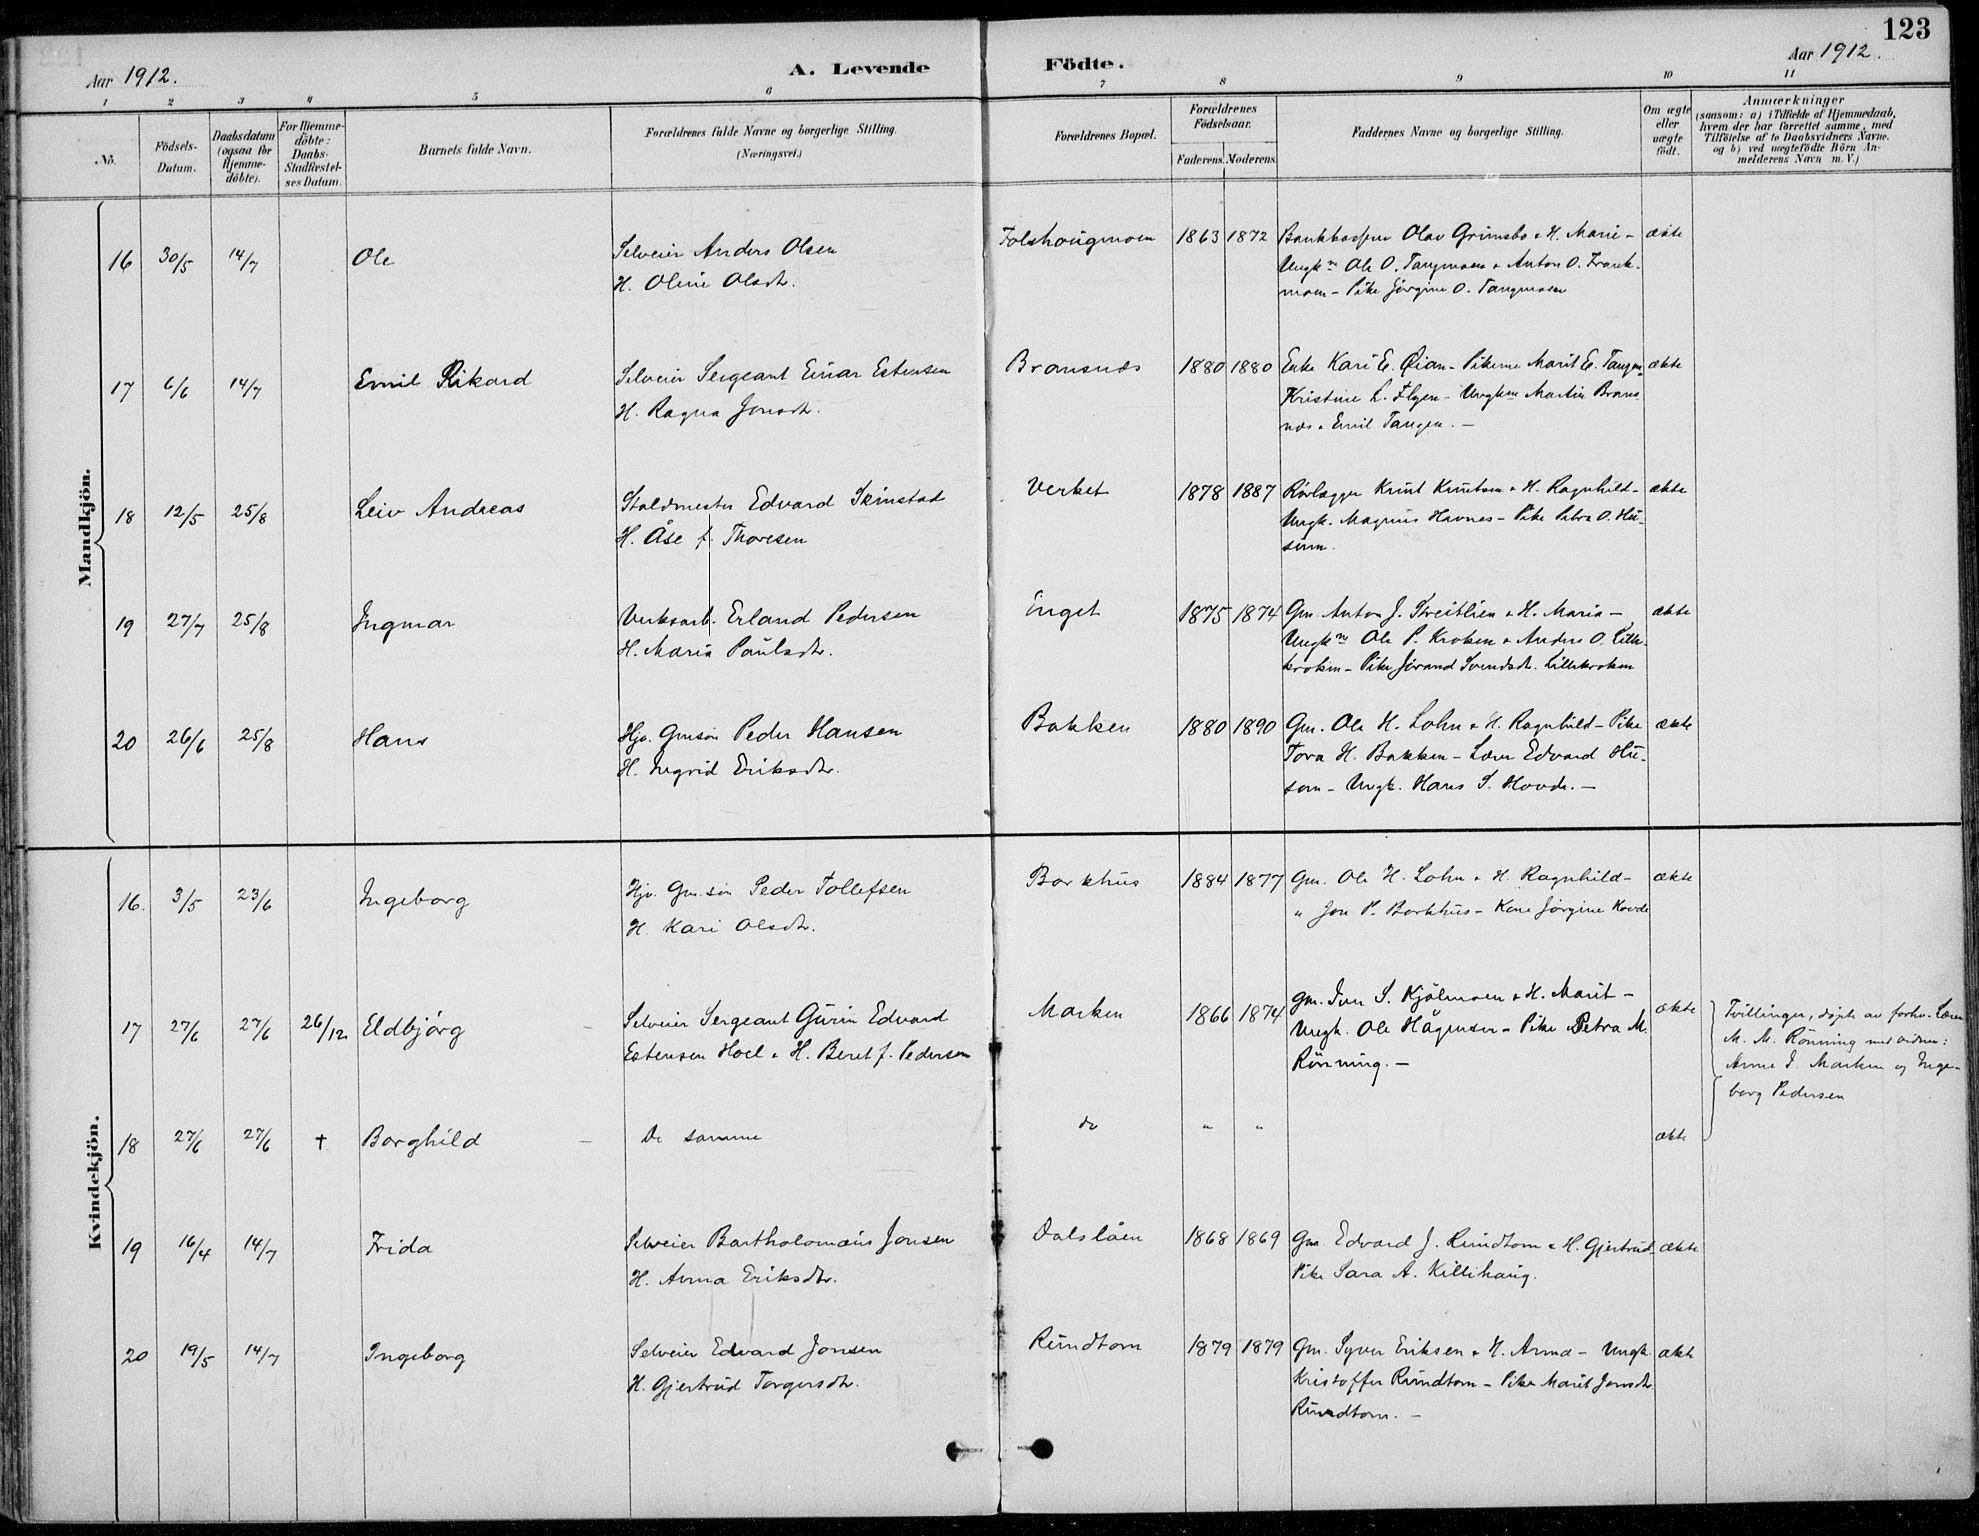 123
Aar 1912.
A. Levende Födte.
Aar 1912.
1 2 3 4 5 6 7 8 9 10 11
No.
Födsels-
Datum.
Daabsdatum
(ogsaa for
Hjemme-
döbte).
For Hjemme-
döbte:
Daabs-
Stadfæstel-
ses Datum.
Barnets fulde Navn.
Forældrenes fulde Navne og borgerlige Stilling.
(Næringsvei.)
Forældrenes Bopæl.
Forældrenes
Födselsaar.
Faderens. Moderens.
Faddernes Navne og borgerlige Stilling.
Om ægte
eller
uægte
födt.
Anmærkninger
(saasom: a) i Tilfælde af Hjemmedaab,
hvem der har forrettet samme, med
Tilföielse af to Daabsvidners Navne.
og b) ved uægtefödte Börn An-
melderens Navn m. V.)
Mandkjön.
16 30/5 14/7 Ole
Selveier Anders Olsen
H. Oline Olsdtr.
Folshougmoen 1863 1872
Olav Grimsbo & H. Marie -
Ungkm Ole O. Tangmoen & Anton O. Frank-
moen - Pike Jörgine O. Tangmoen
ækte
17 6/6 14/7 Emil Rikard
Selveier Sergeant Einar Estensen
H. Ragna Jonsdtr.
Bransnes 1880 1880
Enke Kari E. Øian - Pikerne Marit E. Tangen
Kristine L. Flyen - Ungkm Martin Brans
nes & Emil Tangen. -
ækte
18 12/5 25/8 Leiv Andreas
Staldmester Edvard Skinstad
H. Åse f. Thoresen
Verket 1878 1887
Rörlægger Knut Knutsen & H. Ragnhild -
Ungk. Magnus Havnes - Pike Petra O. Hu-
sum.
ækte
19 27/7 25/8 Ingmar
Verksarb. Erland Pedersen
H. Maria Paulsdtr.
Enget 1875 1874
Gm. Anton J. Streitlien & H. Maria -
Ungkm Ole P. Kroken & Anders O. Lille-
kroken - Pike Jörand Svendsdt. Lillekroken
ækte
20 26/6 25/8 Hans
Hjv. Gmsön Peder Hansen
H. Ingrid Eriksdtr.
Bakken 1880 1890
Gm. Ole H. Lohn & H. Ragnhild - Pike
Tora H. Bakken - Lærer Edvard Hu-
som - Ungk. Hans S. Hovde. -
ækte
Kvindekjön.
16. 3/5 23/6 Ingeborg
Hjv. Gm.sön Peder Tollefsen
H. Kari Olsdtr.
Barkhus 1884 1877
Gm. Ole H. Lohn & H. Ragnhild -
" Jon P. Barkhus - Kone Jörgine Hovde
ækte
17 27/6 27/6 26/12 Eldbjörg
Selveier Sergeant Gurin Edvard
Estensen Hoel & H. Beret f. Pedersen
Marken 1866 1874
Gm. Iver S. Kjölmoen & H. Marit -
Ungk. Ole Hågensen - Pike Petra M.
Rönning. -
ækte
Tvillinger, döpte av forhv. Lærer
M. M. Rönning med vidner:
Anne I. Marken og Inge-
borg Pedersen
18 27/6 27/6 † Borghild
De samme
do " "
ækte
19 16/4 14/7 Frida
Selveier Bartholomæus Jonsen
H. Anna Eriksdtr.
Dalslåen 1868 1869
Gm. Edvard J. Rundtom & H. Gjertrud
Pike Sara A. Killihaug.
ækte
20 19/5 14/7 Ingeborg
Selveier Edvard Jonsen
H. Gjertrud Torgersdtr.
Rundtom 1879 1879
Gm. Syver Eriksen & H. Anna - Ungk.
Kristoffer Rundtom - Pike Marit Jonsdtr.
Rundtom. -
ækte